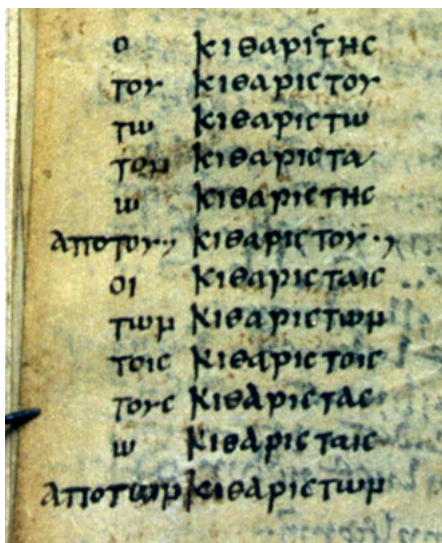 ο κιθαριστης
του κιθαριστου
τω κιθαριστω
τον κιθαριστα
ω κιθαριστης
αποτου·, κιθαριστου·,
οι κιθαρισταις
των κιθαριστων
τοις κιθαριστοις
τους κιθαριστας
ω κιθαρισταις
αποτων κιθαριστων